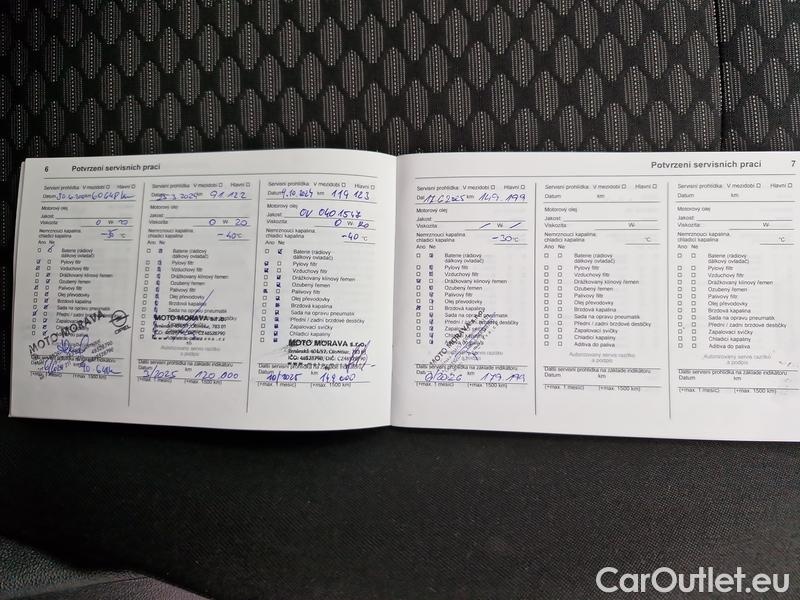 6 Potvrzení servisních prací
Servisní prohlídka: V mezidobí Hlavní
Datum 60648 km
Motorový olej
Jakost:
Viskozita: 0 W 20
Nemrznoucí kapalina,
chladicí kapalina °C
Ano Ne
Baterie (rádiový
dálkový ovladač)
Pylový filtr
Vzduchový filtr
Drážkovaný klínový řemen
Ozubený řemen
Palivový filtr
Olej převodovky
Brzdová kapalina
Sada na opravu pneumatik
Přední / zadní brzdové destičky
MOTO MORAVA
OPEL
Datum km
(+max. 1 měsíc) (+max. 1500 km)
Servisní prohlídka: V mezidobí Hlavní
Datum 91 122
Motorový olej
Jakost:
Viskozita: 0 W 20
Nemrznoucí kapalina,
chladicí kapalina -40 °C
Ano Ne
Baterie (rádiový
dálkový ovladač)
Pylový filtr
Vzduchový filtr
Drážkovaný klínový řemen
Ozubený řemen
Palivový filtr
Olej převodovky
MOTO MORAVA s.r.o.
Další servisní prohlídka na základě indikátoru
Datum km
3/2025 120.000
(+max. 1 měsíc) (+max. 1500 km)
Servisní prohlídka: V mezidobí Hlavní
Datum 9.10.2024 km 119 123
Motorový olej
Jakost: OV 0401547
Viskozita: 0 W 20
Nemrznoucí kapalina,
chladicí kapalina -40 °C
Ano Ne
Baterie (rádiový
dálkový ovladač)
Pylový filtr
Vzduchový filtr
Drážkovaný klínový řemen
Ozubený řemen
Palivový filtr
Olej převodovky
Brzdová kapalina
Sada na opravu pneumatik
Přední / zadní brzdové destičky
Zapalovací svíčky
MOTO MORAVA s.r.o.
Další servisní prohlídka na základě indikátoru
Datum km
10/2025 149000
(+max. 1 měsíc) (+max. 1500 km)
Potvrzení servisních prací 7
Servisní prohlídka: V mezidobí Hlavní
149 199
Motorový olej
Jakost:
Viskozita: W
Nemrznoucí kapalina,
chladicí kapalina -30 °C
Ano Ne
Baterie (rádiový
dálkový ovladač)
Pylový filtr
Vzduchový filtr
Drážkovaný klínový řemen
Ozubený řemen
Palivový filtr
Olej převodovky
Brzdová kapalina
Sada na opravu pneumatik
Přední / zadní brzdové destičky
Zapalovací svíčky
Chladicí kapalina
Aditiva do paliva
MOTO MORAVA
Další servisní prohlídka na základě indikátoru
Datum km
179 199
(+max. 1 měsíc) (+max. 1500 km)
Servisní prohlídka: V mezidobí Hlavní
Datum km
Motorový olej
Jakost:
Viskozita: W-
Nemrznoucí kapalina,
chladicí kapalina °C
Ano Ne
Baterie (rádiový
dálkový ovladač)
Pylový filtr
Vzduchový filtr
Drážkovaný klínový řemen
Ozubený řemen
Palivový filtr
Olej převodovky
Brzdová kapalina
Sada na opravu pneumatik
Přední / zadní brzdové destičky
Zapalovací svíčky
Chladicí kapalina
Aditiva do paliva
Autorizovaný servis razítko
a podpis
Další servisní prohlídka na základě indikátoru
Datum km
(+max. 1 měsíc) (+max. 1500 km)
Servisní prohlídka: V mezidobí Hlavní
Datum km
Motorový olej
Jakost:
Viskozita: W-
Nemrznoucí kapalina,
chladicí kapalina °C
Ano Ne
Baterie (rádiový
dálkový ovladač)
Pylový filtr
Vzduchový filtr
Drážkovaný klínový řemen
Ozubený řemen
Palivový filtr
Olej převodovky
Brzdová kapalina
Sada na opravu pneumatik
Přední / zadní brzdové destičky
Zapalovací svíčky
Chladicí kapalina
Aditiva do paliva
Autorizovaný servis razítko
a podpis
Další servisní prohlídka na základě indikátoru
Datum km
(+max. 1 měsíc) (+max. 1500 km)
CarOutlet.eu